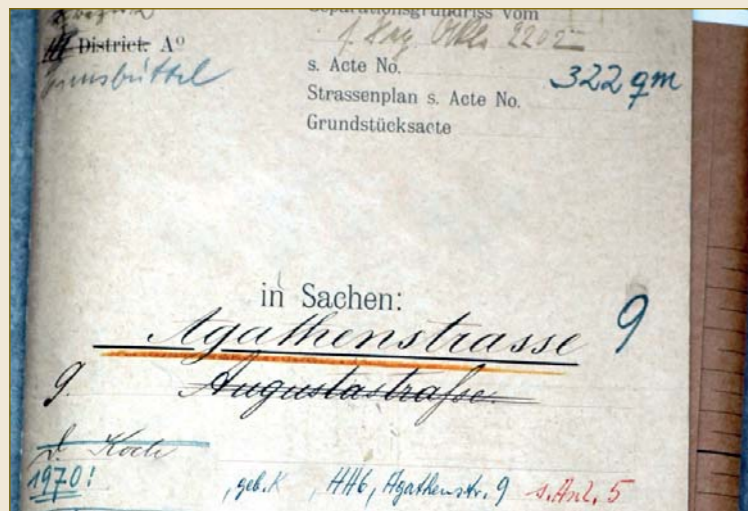 Separationsgrundriss vom
District. Aº
Eimsbüttel
s. Acte No.
322 qm
Strassenplan s. Acte No.
Grundstücksacte
in Sachen:
Agathenstrasse 9
9. Augustastraße.
Koch
1970! , geb. K , HH6, Agathenstr. 9 s. Anl. 5